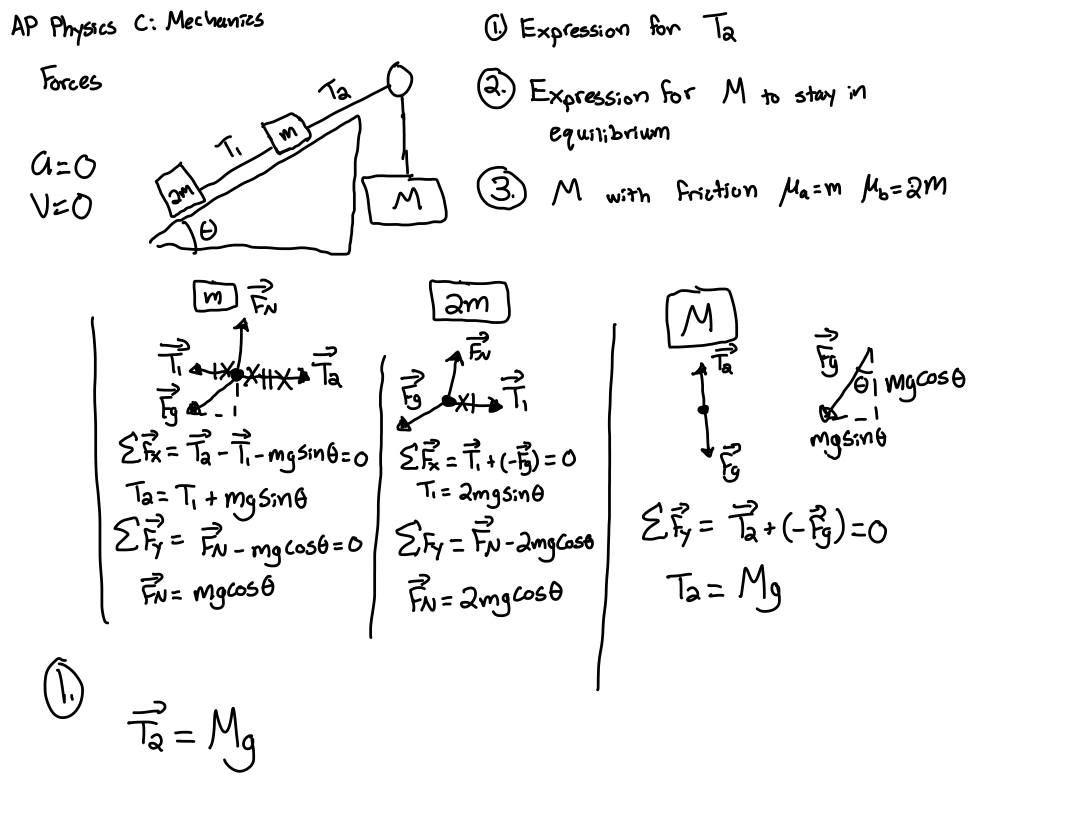 AP Physics C: Mechanics
Forces
a=0
V=0
2m
T₁
m
T₂
M
θ
① Expression for T₂
② Expression for M to stay in
equilibrium
③ M with friction μₐ=m μ_b=2m
m
F⃗N
T⃗₁
T⃗₂
F⃗g
ΣF⃗x = T⃗₂ - T⃗₁ - mgsinθ = 0
T₂ = T₁ + mgsinθ
ΣF⃗y = F⃗N - mgcosθ = 0
F⃗N = mgcosθ
2m
F⃗N
F⃗g
T⃗₁
ΣF⃗x = T⃗₁ + (-F⃗g) = 0
T₁ = 2mgsinθ
ΣFy = F⃗N - 2mgcosθ
F⃗N = 2mgcosθ
M
T⃗₂
F⃗g
F⃗g
θ
mgcosθ
mgsinθ
ΣF⃗y = T⃗₂ + (-F⃗g) = 0
T₂ = Mg
1.
T⃗₂ = Mg